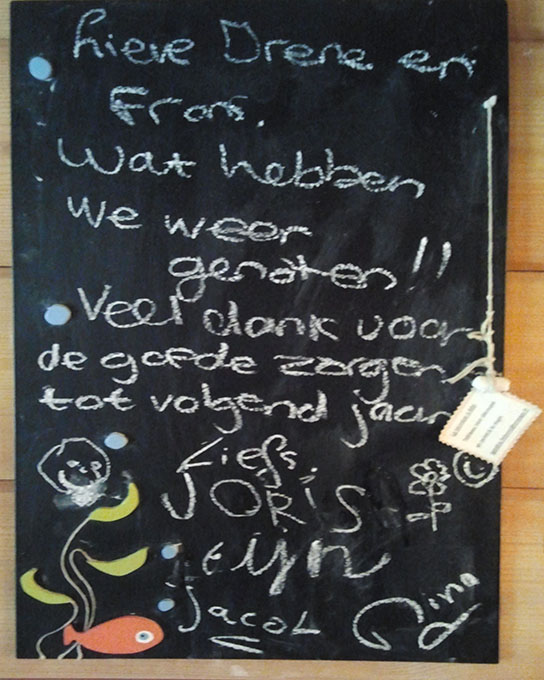 Lieve Irene en
Frans.
Wat hebben
we weer
genoten!!
Veel dank voor
de goede zorgen
tot volgend jaar
Liefs,
JORIS
Jacob